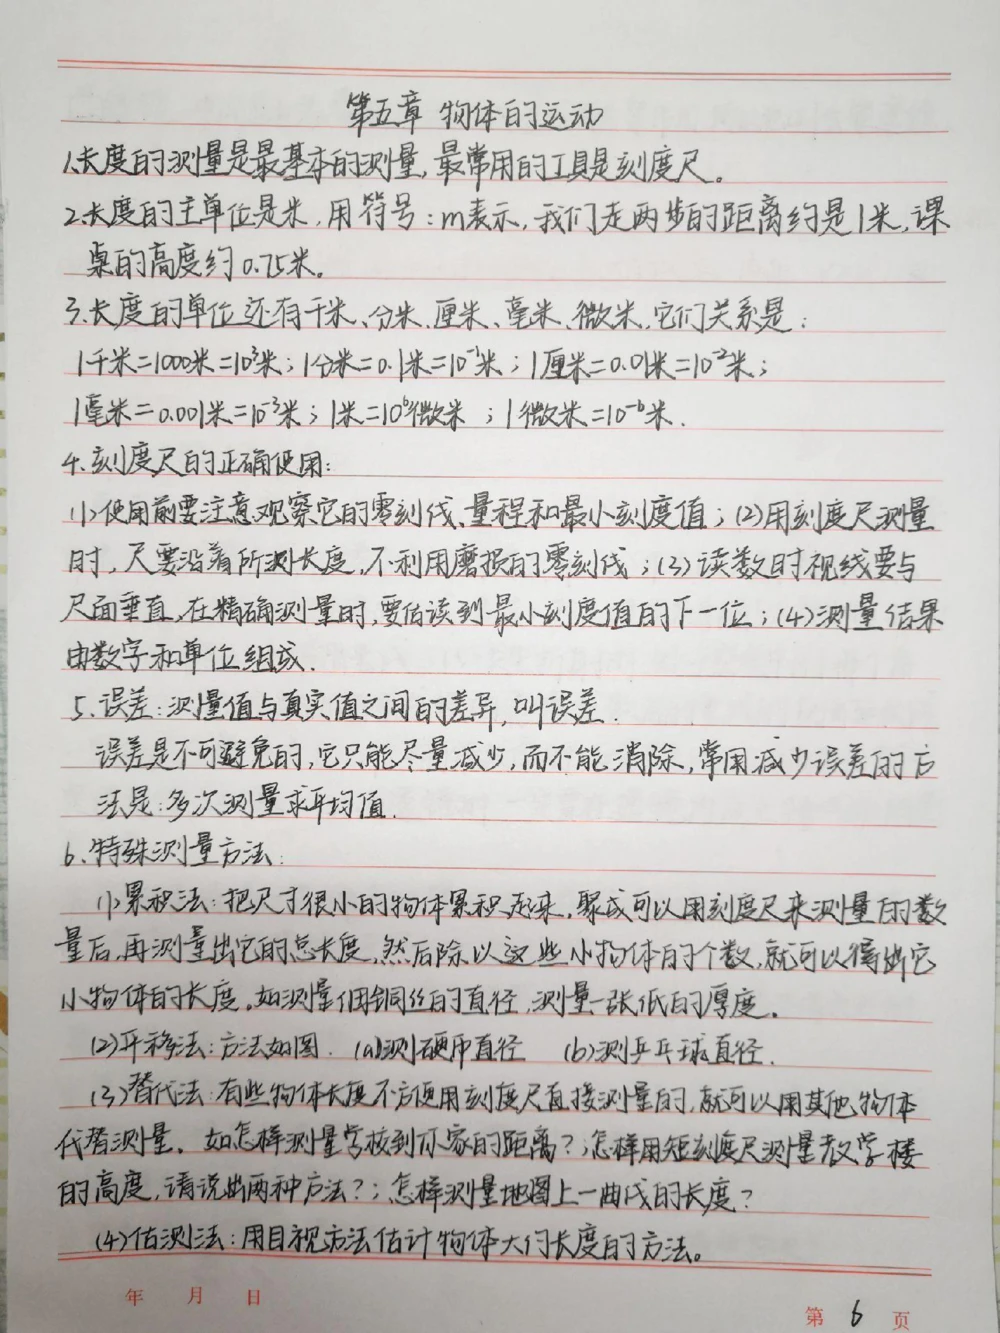 第五章 物体的运动
1.长度的测量是最基本的测量,最常用的工具是刻度尺。
2.长度的主单位是米,用符号:m表示,我们走两步的距离约是1米,课
桌的高度约0.75米。
3.长度的单位还有千米、分米、厘米、毫米、微米,它们关系是:
1千米=1000米=10³米;1分米=0.1米=10⁻¹米;1厘米=0.01米=10⁻²米;
1毫米=0.001米=10⁻³米;1米=10⁶微米;1微米=10⁻⁶米.
4.刻度尺的正确使用:
(1)使用前要注意观察它的零刻线、量程和最小刻度值;(2)用刻度尺测量
时,尺要沿着所测长度,不利用磨损的零刻线;(3)读数时视线要与
尺面垂直,在精确测量时,要估读到最小刻度值的下一位;(4)测量结果
由数字和单位组成.
5.误差:测量值与真实值之间的差异,叫误差.
误差是不可避免的,它只能尽量减少,而不能消除,常用减少误差的方
法是:多次测量求平均值.
6.特殊测量方法:
(1)累积法:把尺寸很小的物体累积起来,聚成可以用刻度尺来测量的数
量后,再测量出它的总长度,然后除以这些小物体的个数,就可以得出它
小物体的长度。如测量细铜丝的直径,测量一张纸的厚度。
(2)平移法:方法如图. (a)测硬币直径 (b)测乒乓球直径.
(3)替代法:有些物体长度不方便用刻度尺直接测量的,就可以用其他物体
代替测量。如怎样测量学校到你家的距离?;怎样用短刻度尺测量教学楼
的高度,请说出两种方法?;怎样测量地图上一曲线的长度?
(4)估测法:用目视方法估计物体大约长度的方法。
年 月 日
第 6 页